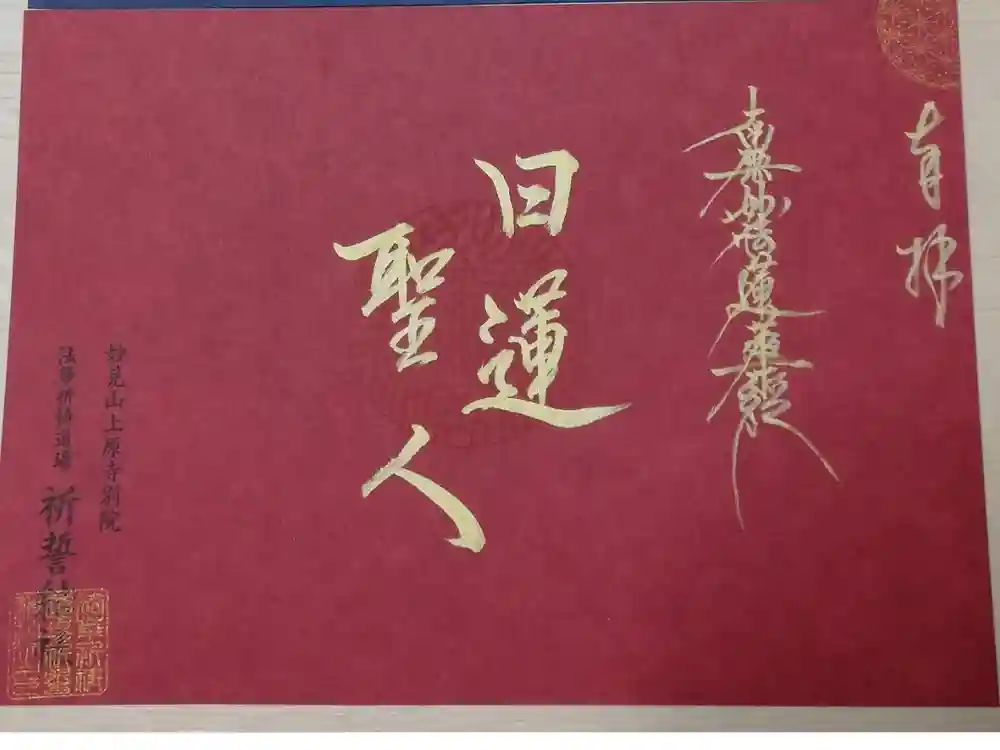 奉拝
南無妙法蓮華経
日蓮
聖人
妙見山上原寺別院
法華祈祷道場 祈誓結社